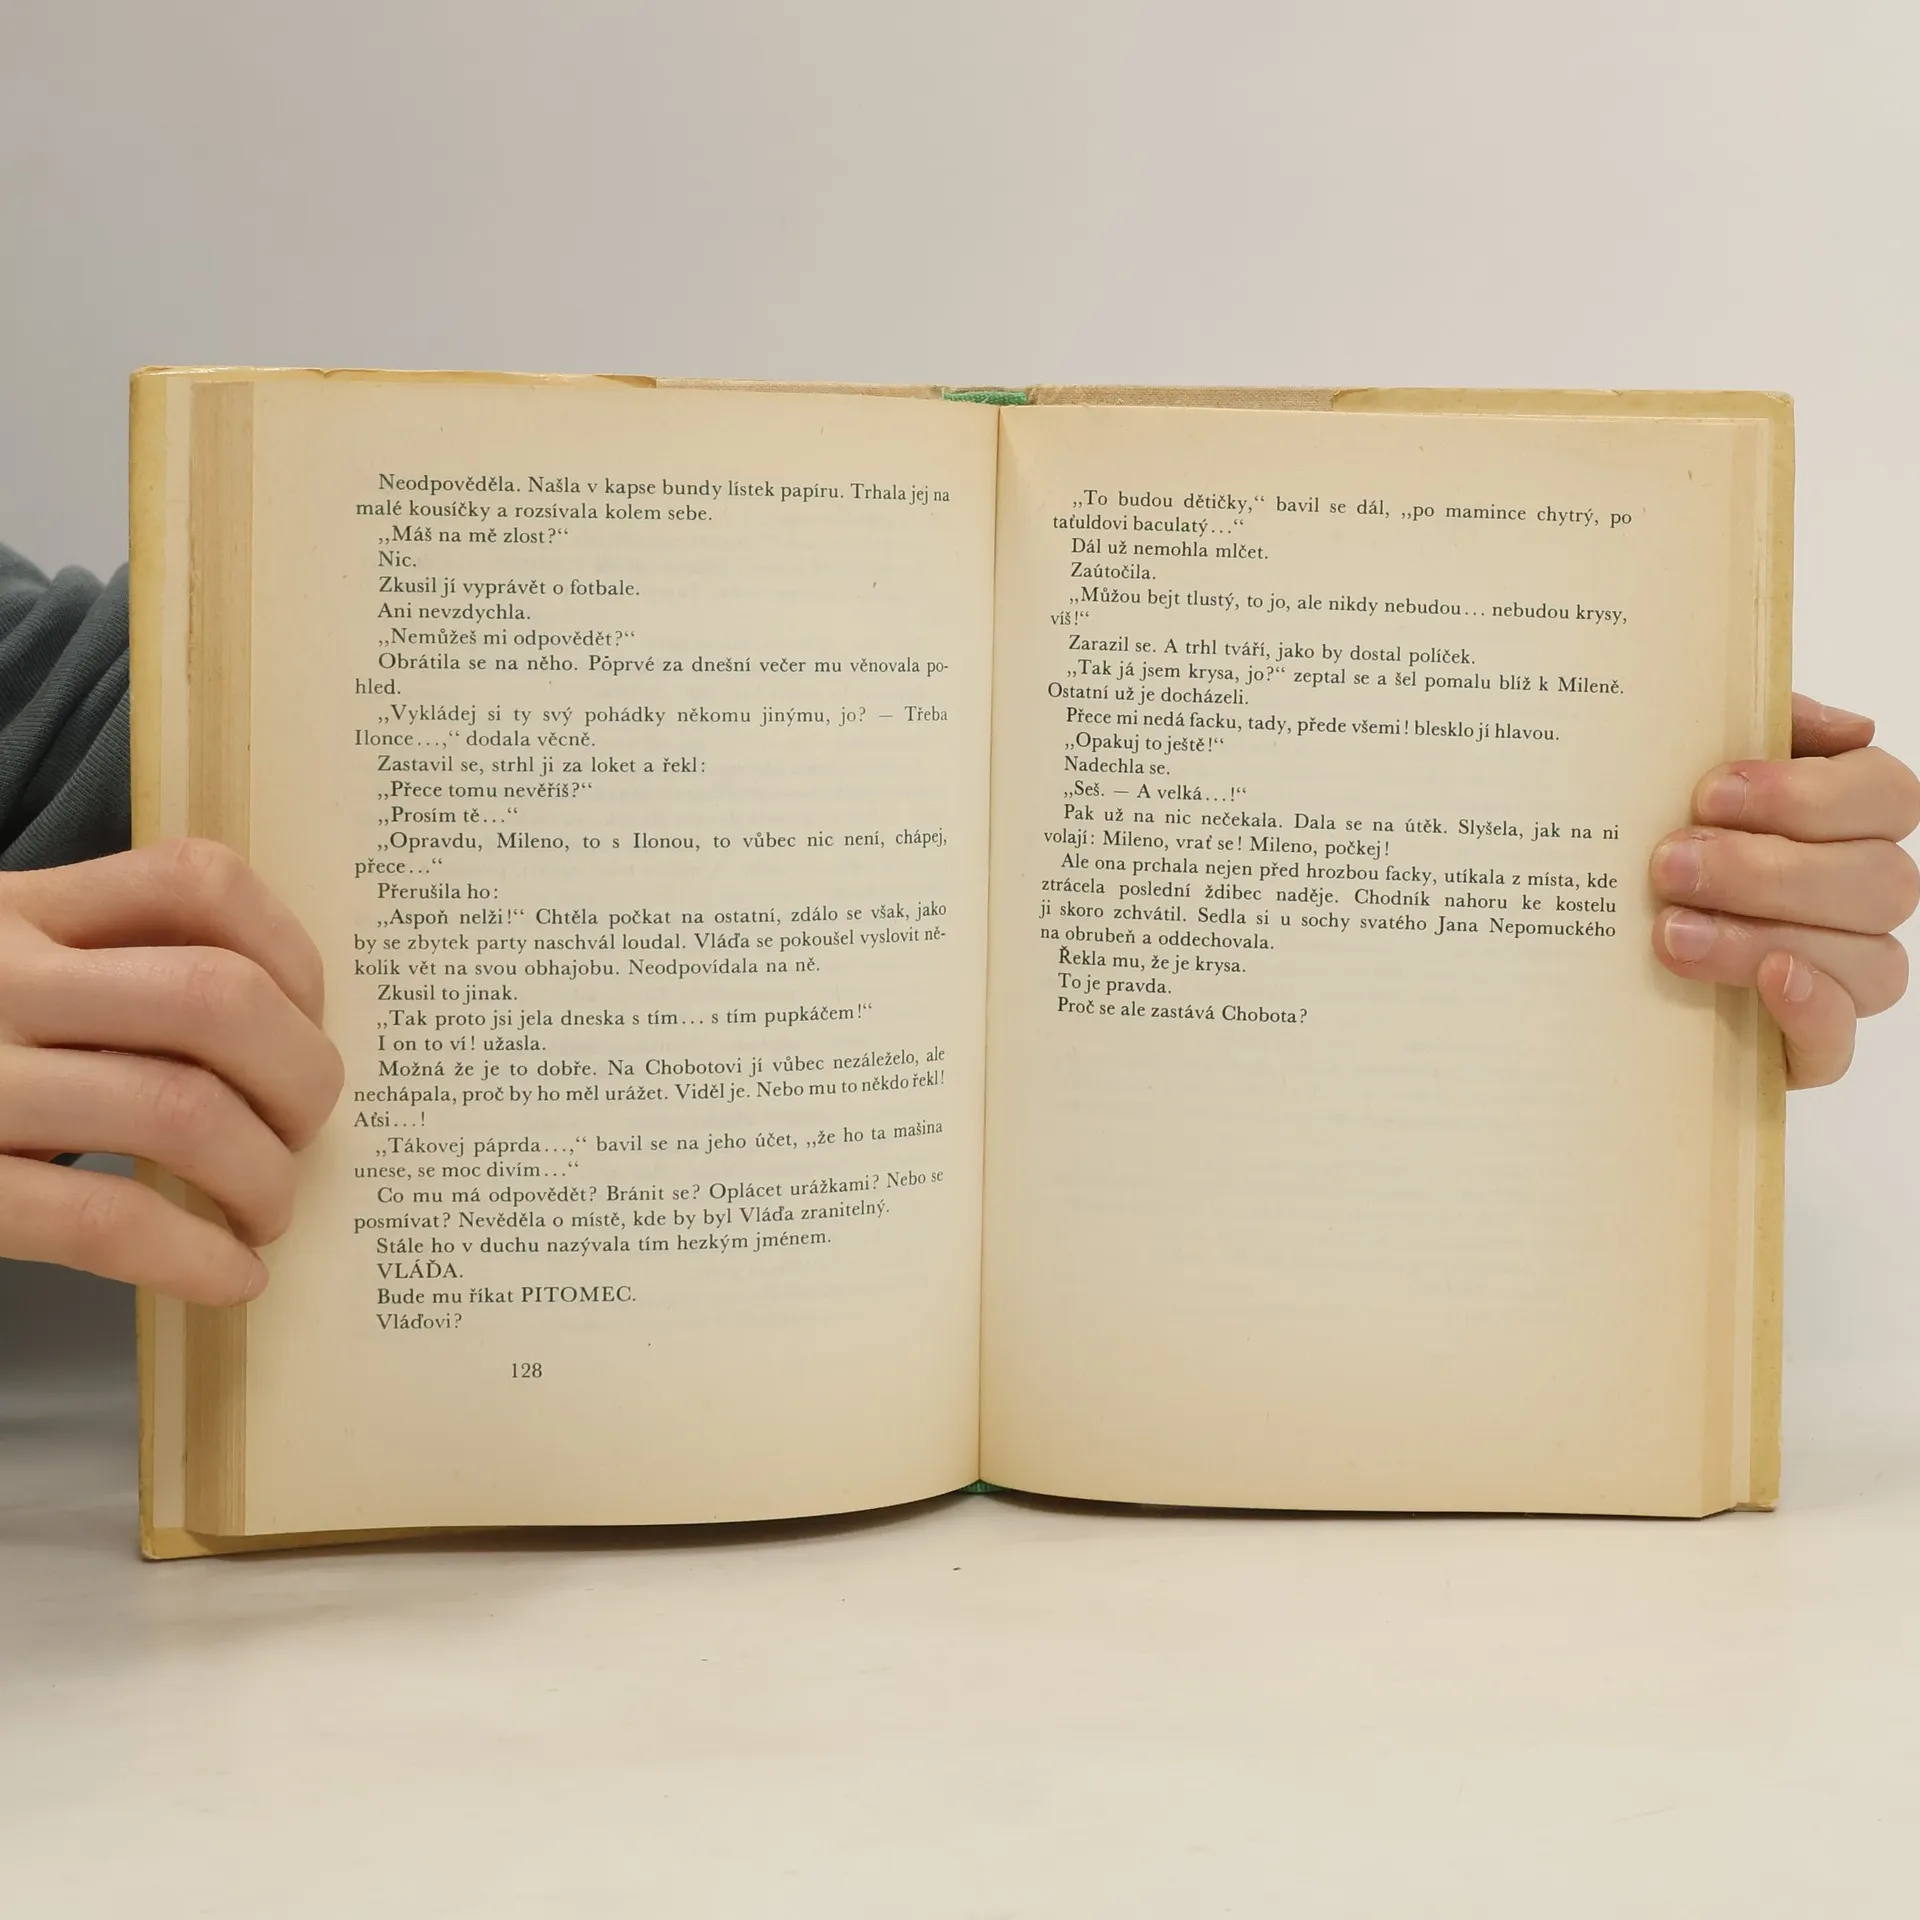 Neodpověděla. Našla v kapse bundy lístek papíru. Trhala jej na
malé kousíčky a rozsívala kolem sebe.
„Máš na mě zlost?“
Nic.
Zkusil jí vyprávět o fotbale.
Ani nevzdychla.
„Nemůžeš mi odpovědět?“
Obrátila se na něho. Poprvé za dnešní večer mu věnovala po-
hled.
„Vykládej si ty svý pohádky někomu jinýmu, jo? — Třeba
Ilonce...,“ dodala věcně.
Zastavil se, strhl ji za loket a řekl:
„Přece tomu nevěříš?“
„Prosím tě...“
„Opravdu, Mileno, to s Ilonou, to vůbec nic není, chápej,
přece...“
Přerušila ho:
„Aspoň nelži!“ Chtěla počkat na ostatní, zdálo se však, jako
by se zbytek party naschvál loudal. Vláďa se pokoušel vyslovit ně-
kolik vět na svou obhajobu. Neodpovídala na ně.
Zkusil to jinak.
„Tak proto jsi jela dneska s tím... s tím pupkáčem!“
I on to ví! užasla.
Možná že je to dobře. Na Chobotovi jí vůbec nezáleželo, ale
nechápala, proč by ho měl urážet. Viděl je. Nebo mu to někdo řekl!
Aťsi...!
„Tákovej páprda...,“ bavil se na jeho účet, „že ho ta mašina
unese, se moc divím...“
Co mu má odpovědět? Bránit se? Oplácet urážkami? Nebo se
posmívat? Nevěděla o místě, kde by byl Vláďa zranitelný.
Stále ho v duchu nazývala tím hezkým jménem.
VLÁĎA.
Bude mu říkat PITOMEC.
Vláďovi?
128
„To budou dětičky,“ bavil se dál, „po mamince chytrý, po
taťuldovi baculatý...“
Dál už nemohla mlčet.
Zaútočila.
„Můžou bejt tlustý, to jo, ale nikdy nebudou... nebudou krysy,
víš!“
Zarazil se. A trhl tváří, jako by dostal políček.
„Tak já jsem krysa, jo?“ zeptal se a šel pomalu blíž k Mileně.
Ostatní už je docházeli.
Přece mi nedá facku, tady, přede všemi! blesklo jí hlavou.
„Opakuj to ještě!“
Nadechla se.
„Seš. — A velká...!“
Pak už na nic nečekala. Dala se na útěk. Slyšela, jak na ni
volají: Mileno, vrať se! Mileno, počkej!
Ale ona prchala nejen před hrozbou facky, utíkala z místa, kde
ztrácela poslední ždibec naděje. Chodník nahoru ke kostelu
ji skoro zchvátil. Sedla si u sochy svatého Jana Nepomuckého
na obrubeň a oddechovala.
Řekla mu, že je krysa.
To je pravda.
Proč se ale zastává Chobota?